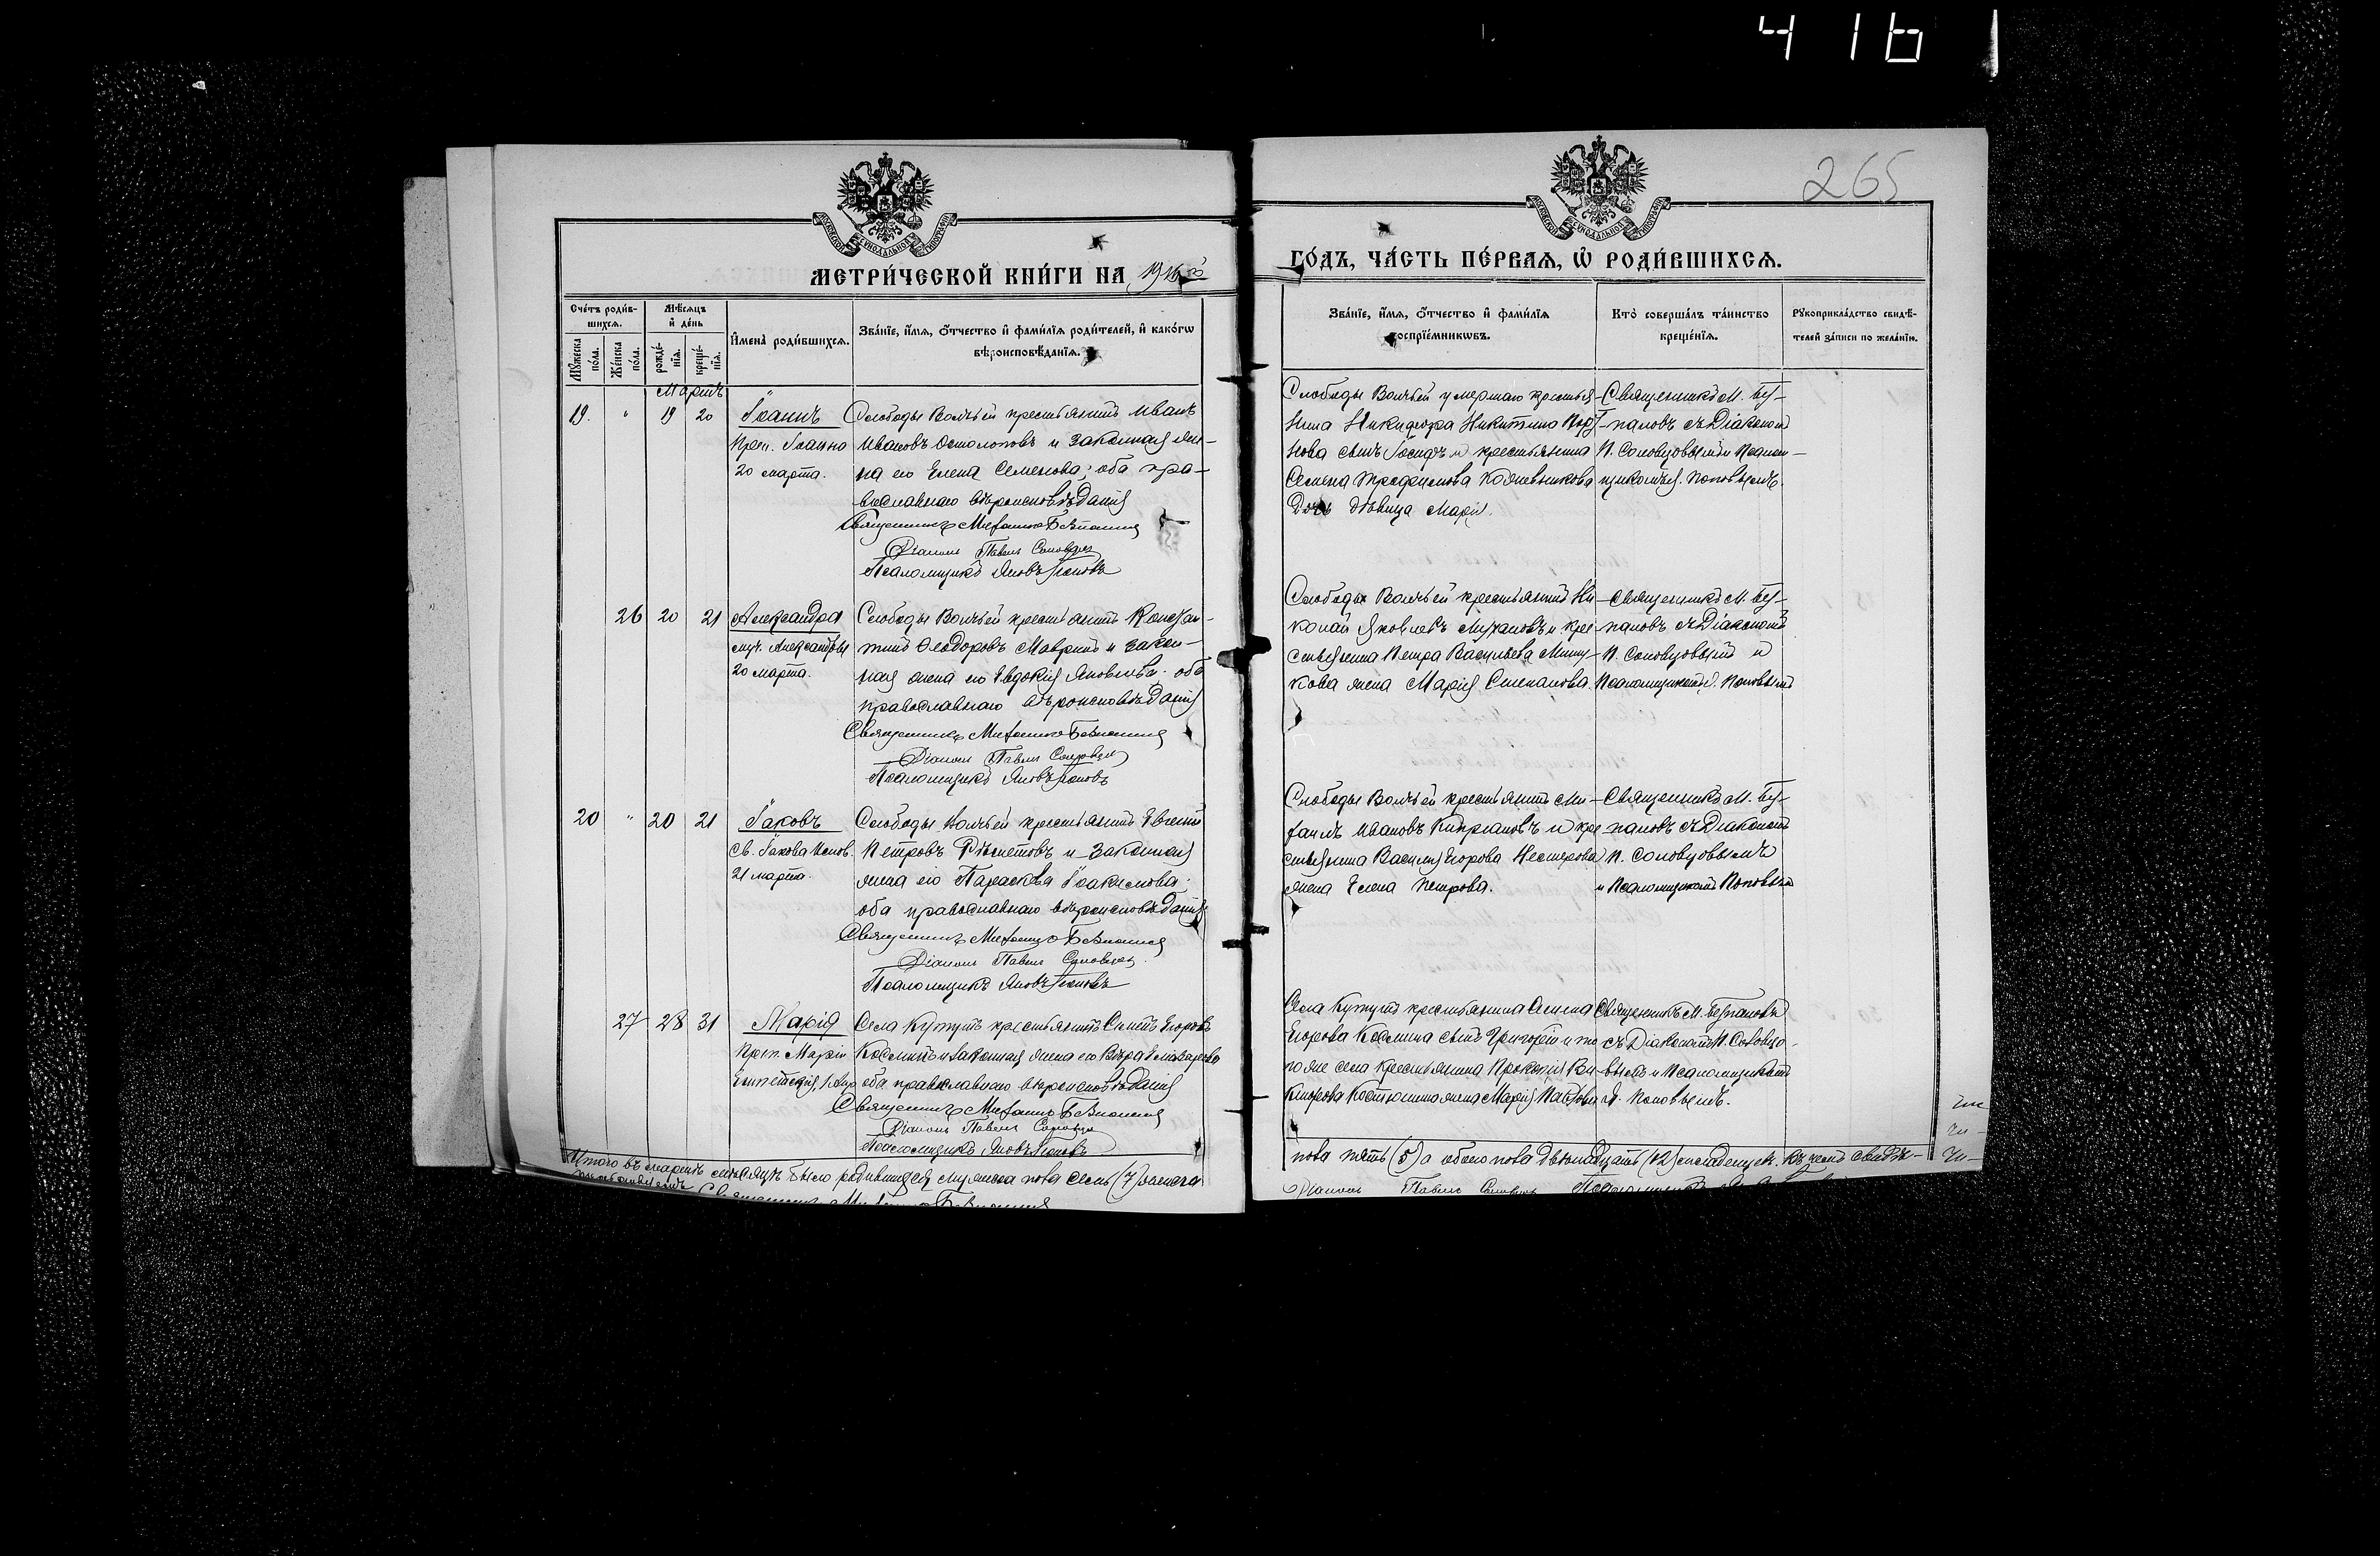 4 1 6
265
МЕТРИЧЕСКОЙ КНИГИ НА 1916й
ГОДЪ, ЧАСТЬ ПЕРВАЯ, Ѡ РОДИВШИХСЯ.
Счетъ родив-
шихся.
Мужеска
пола.
Женска
пола.
Мѣсяцъ
и день
рожде-
нія.
креще-
нія.
Имена родившихся.
Званіе, имя, отчество и фамилія родителей, и какогѡ
вѣроисповѣданія.
Званіе, имя, отчество и фамилія
воспріемникѡвъ.
Кто совершалъ таинство
крещенія.
Рукоприкладство свидѣ-
телей записи по желанію.
Мартъ
19. " 19 20
Іоаннъ
Преп. Іоанна
20 марта.
Слободы Волчьей крестьянинъ Иванъ
Ивановъ Остолоповъ и законная же-
на его Елена Семенова; оба пра-
вославнаго вѣроисповѣданія
Священникъ Митрофанъ
Діаконъ Павелъ Соловцовъ
Псаломщикъ Яковъ Поповъ
Слободы Волчьей умершаго крестья-
нина Никифора Никитина
нова сынъ Іосифъ и крестьянина
Семена Трофимова
дочь дѣвица Марія.
Священникъ М. Без-
пановъ съ Діакономъ
П. Соловцовымъ и Псалом-
щикомъ Я. Поповымъ.
26 20 21
Александра
муч. Александры
20 марта.
Слободы Волчьей крестьянинъ Констан-
тинъ Ѳеодоровъ Мавринъ и закон-
ная жена его Евдокія Яковлева; оба
православнаго вѣроисповѣданія
Священникъ Митрофанъ
Діаконъ Павелъ Соловцовъ
Псаломщикъ Яковъ Поповъ
Слободы Волчьей крестьянинъ Ни-
колай Яковлевъ и кре-
стьянина Петра Васильева
кова жена Марія Степанова.
Священникъ М. Без-
пановъ съ Діакономъ
П. Соловцовымъ и
Псаломщикомъ Я. Поповымъ
20 " 20 21
Іаковъ
Св. Іакова Испов.
21 марта.
Слободы Волчьей крестьянинъ Евгеній
Петровъ и законная
жена его Параскева Іоакимова;
оба православнаго вѣроисповѣданія
Священникъ Митрофанъ
Діаконъ Павелъ Соловцовъ
Псаломщикъ Яковъ Поповъ
Слободы Волчьей крестьянинъ Ми-
хаилъ Ивановъ Кипріановъ и кре-
стьянина Василія Егорова Нестерова
жена Елена Петрова.
Священникъ М. Без-
пановъ съ Діакономъ
П. Соловцовымъ
и Псаломщикомъ Поповымъ
27 28 31
Марія
Преп. Маріи
Египетскія, 1 Апр.
Села крестьянинъ Егоровъ
Косминъ и законная жена его Вѣра
оба православнаго вѣроисповѣданія
Священникъ Митрофанъ
Діаконъ Павелъ Соловцовъ
Псаломщикъ Яковъ Поповъ
Села крестьянина
Егорова Космина сынъ Григорій и то-
го же села крестьянина Прокопія Ви-
кторова жена Марія
Священникъ М. Безпановъ
съ Діакономъ П. Соловцо-
вымъ и Псаломщикомъ
Я. Поповымъ.
Итого въ мартѣ мѣсяцѣ было родившихся мужеска пола семь (7) женска
пола пять (5) а обоего пола двѣнадцать (12) младенцевъ. Въ чемъ свидѣ-